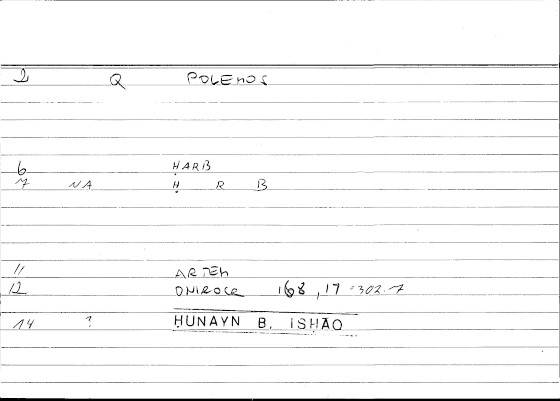 2 Q POLEMOS
6 ḤARB
7 NA Ḥ R B
11 ARTEM
12 ONIROCR 168,17 = 302.7
14 ? ḤUNAYN B. ISḤAQ